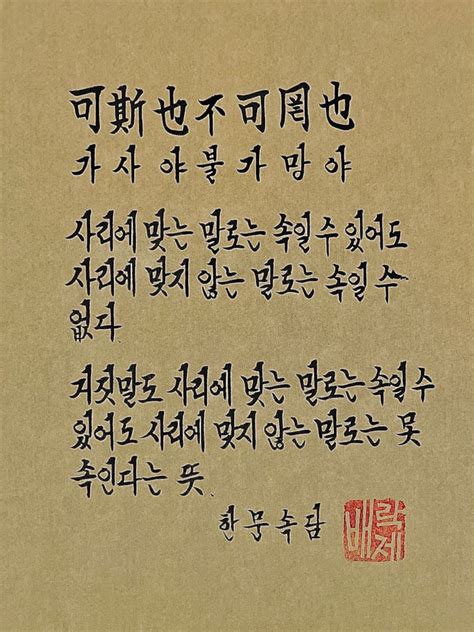 可斯也不可罔也
가사야불가망야
사리에 맞는 말로는 속일 수 있어도
사리에 맞지 않는 말로는 속일 수
없다
거짓말도 사리에 맞는 말로는 속일 수
있어도 사리에 맞지 않는 말로는 못
속인다는 뜻.
한문속담